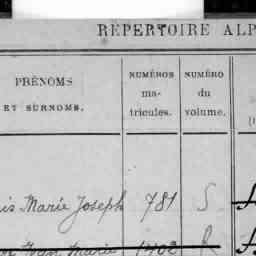 RÉPERTOIRE ALP
PRÉNOMS
ET SURNOMS.
NUMÉROS
ma-
tricules.
NUMÉRO
du
volume.
is Marie Joseph 781 S
Yvan Marie 1402 R